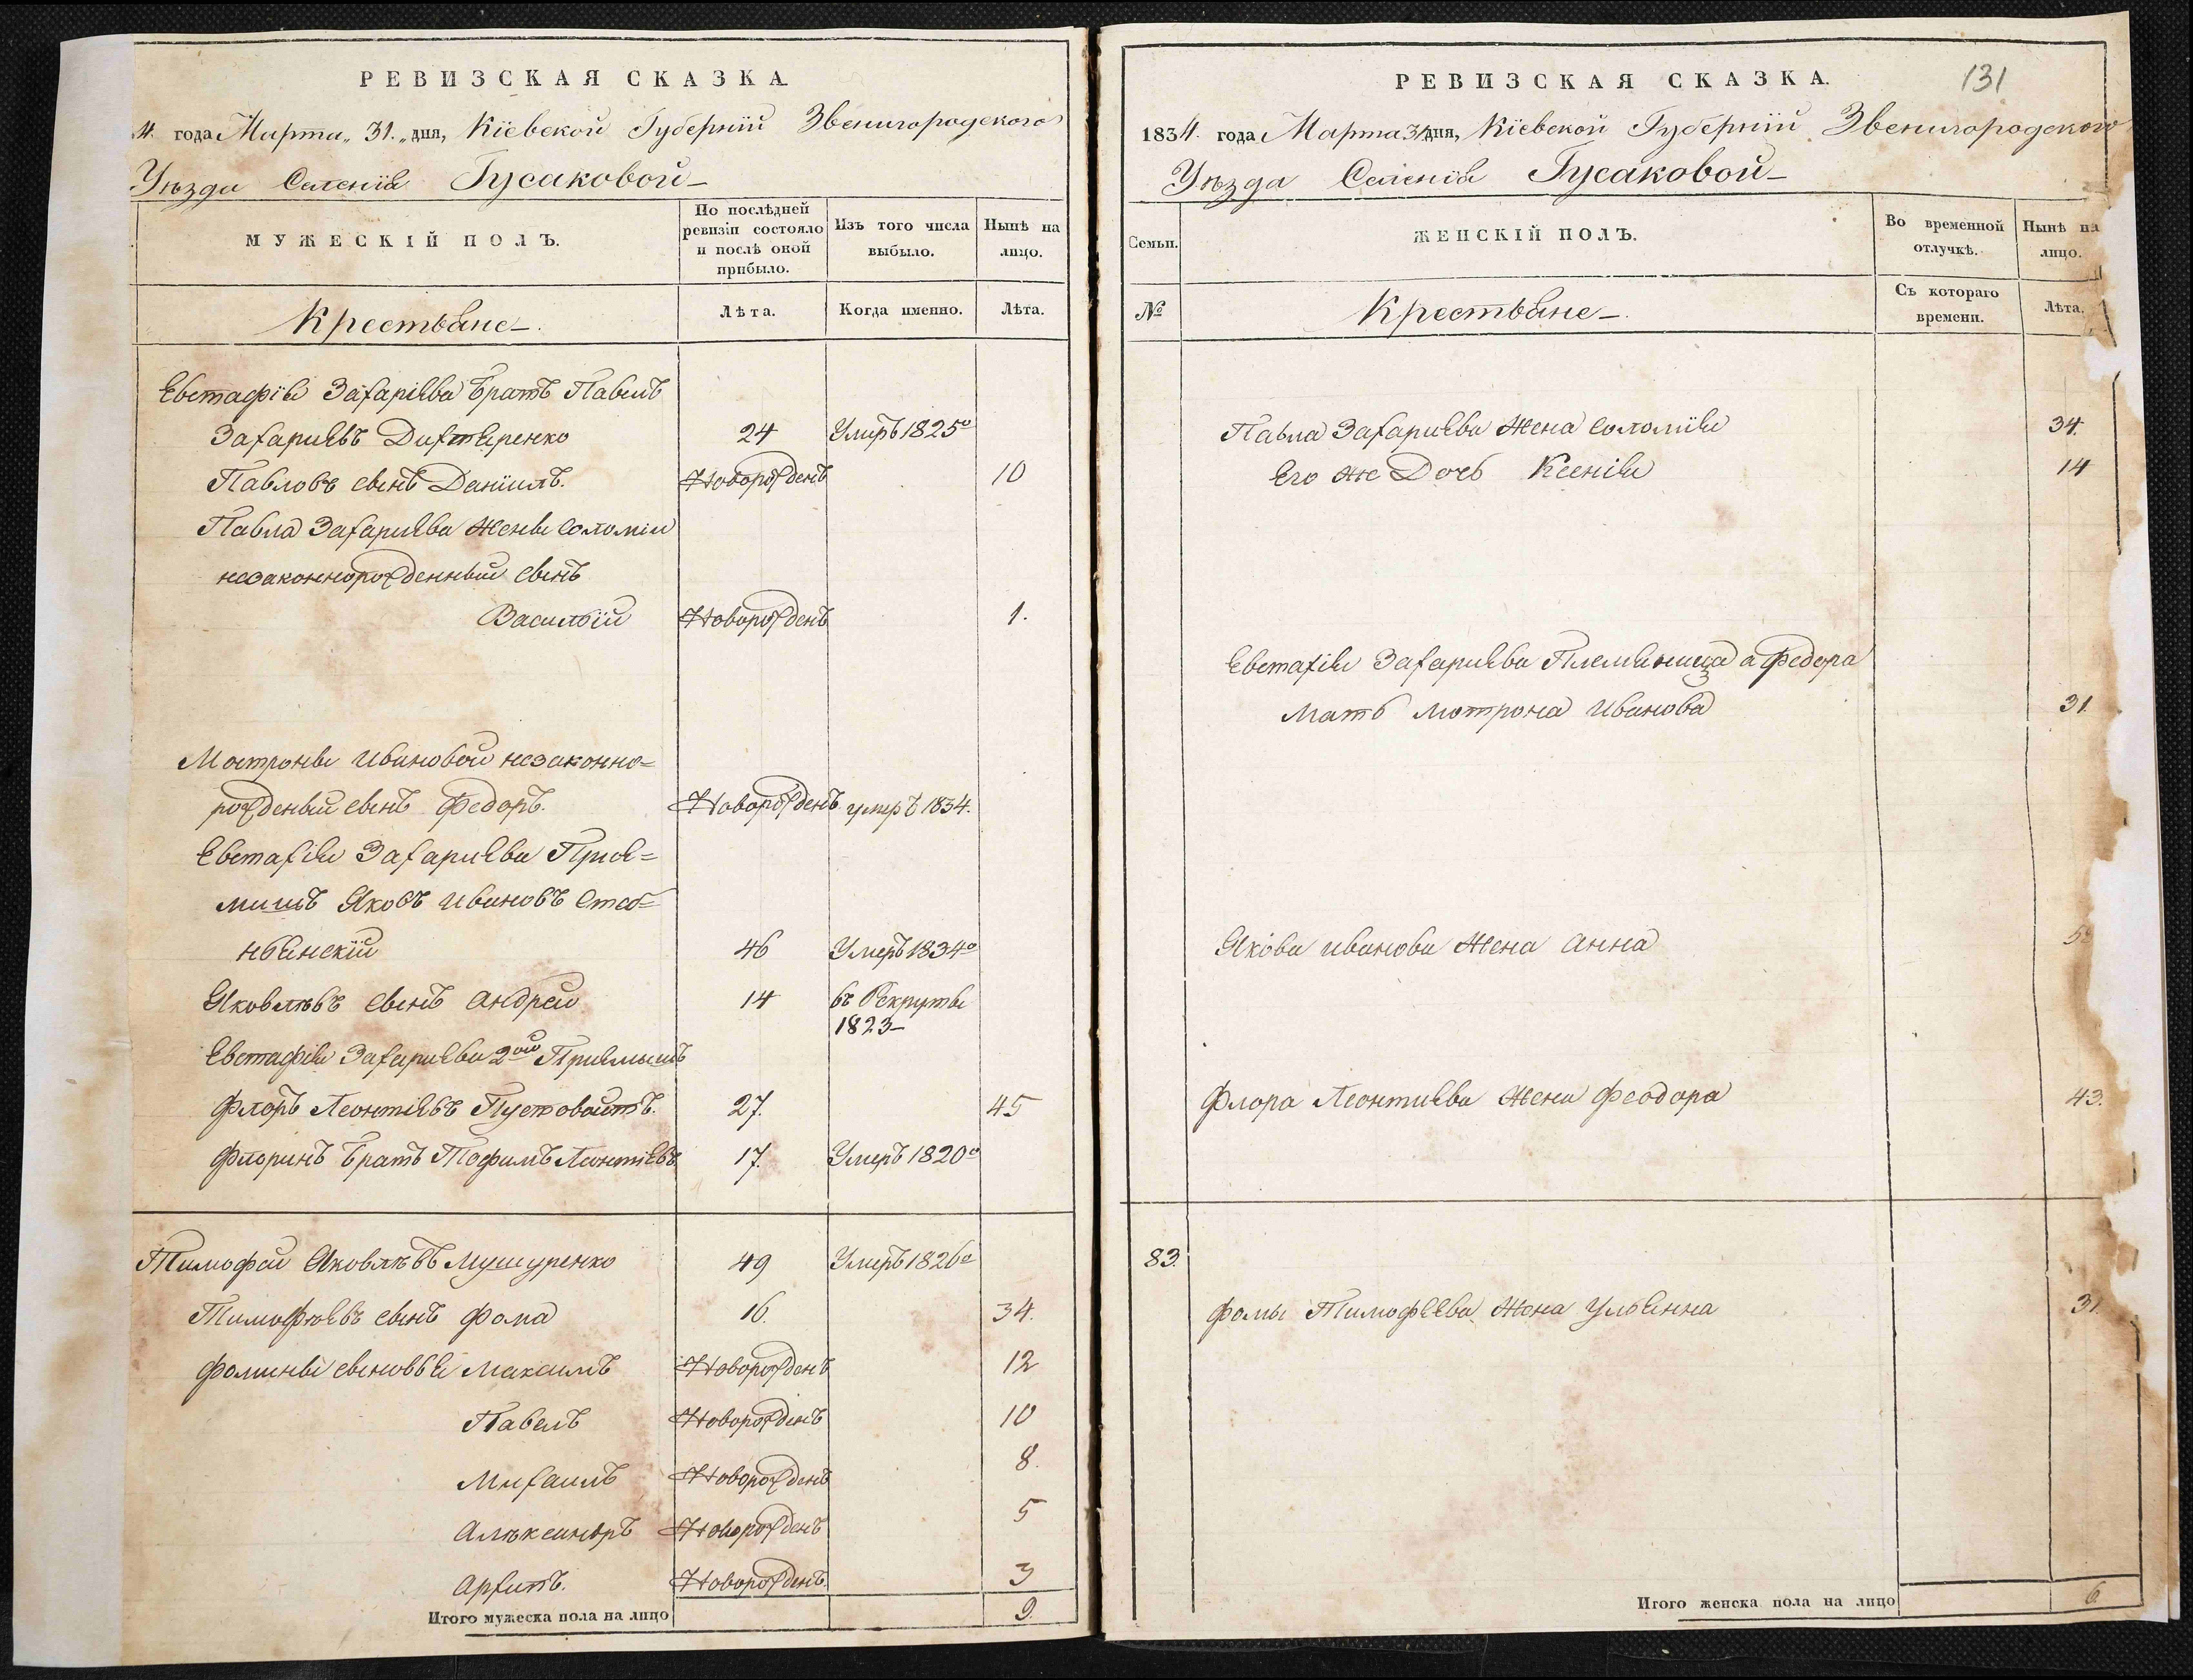 РЕВИЗСКАЯ СКАЗКА.
4. года Марта „31.„ дня, Кіевской Губерніи Звенигородского
Уѣзда Селенія Гусаковой
МУЖЕСКІЙ ПОЛЪ.
По послѣдней
ревизіи состояло
и послѣ оной
прибыло.
Изъ того числа
выбыло.
Нынѣ на
лицо.
Крестьяне
Лѣта.
Когда именно.
Лѣта.
Евстафія Захаріева братъ Павелъ
Захаріевъ 24 Умеръ 1825о
Павловъ сынъ Даніилъ. Новорожденъ 10
Павла Захаріева жены Соломіи
незаконнорожденный сынъ
Василій Новорожденъ 1.
Мотроны Ивановой незаконно=
рожденый сынъ Федоръ. Новорожденъ умеръ 1834.
Евстафія Захаріева Пріе=
мишъ Яковъ Ивановъ
46 Умеръ 1834о
Яковлѣвъ сынъ Андрей 14 въ Рекруты
1823
Евстафія Захаріева 2ой Пріемышъ
Флоръ Леонтіевъ Пустовойтъ. 27. 45
Флоринъ братъ Тофимъ Леонтіевъ 17. Умеръ 1820о
Тимофей Яковлѣвъ Мушуренко 49 Умеръ 1826о
Тимофѣевъ сынъ Фома 16. 34.
Фомины сыновья Максимъ Новорожденъ 12
Павелъ Новорожденъ 10
Михаилъ Новорожденъ 8.
Алѣксандръ Новорожденъ 5
Архипъ. Новорожденъ. 3
Итого мужеска пола на лицо 9.
РЕВИЗСКАЯ СКАЗКА.
131
1834. года Марта 31 дня, Кіевской Губерніи Звенигородского
Уѣзда Селенія Гусаковой
Семьи.
ЖЕНСКІЙ ПОЛЪ.
Во временной
отлучкѣ.
Нынѣ на
лицо.
№
Крестьяне
Съ котораго
времени.
Лѣта.
Павла Захаріева жена Соломія 34.
Его же Дочь Ксенія 14
Евстафія Захаріева Племяница а Федора
мать Мотрона Иванова 31.
Якова Иванова жена Анна
Флора Леонтиева жена Феодора 43.
83.
Фомы Тимофеева жена Ульянна 31.
Итого женска пола на лицо 6.